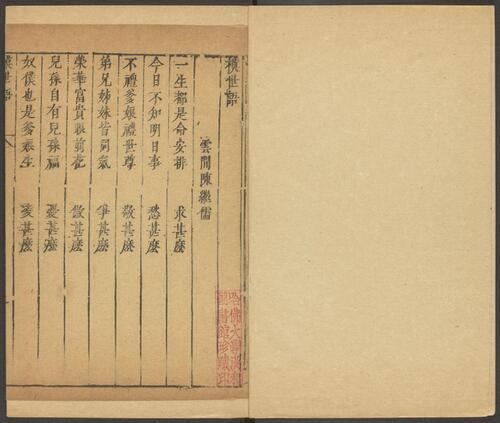 模世語
雲間陳繼儒
一生都是命安排 求甚麼
今日不知明日事 愁甚麼
不禮爹娘禮世尊 敬甚麼
弟兄姊妹皆同氣 爭甚麼
榮華富貴眼前花 傲甚麼
兒孫自有兒孫福 憂甚麼
奴僕也是爹娘生 凌甚麼
模世語
哈佛大學漢和
圖書館珍藏印